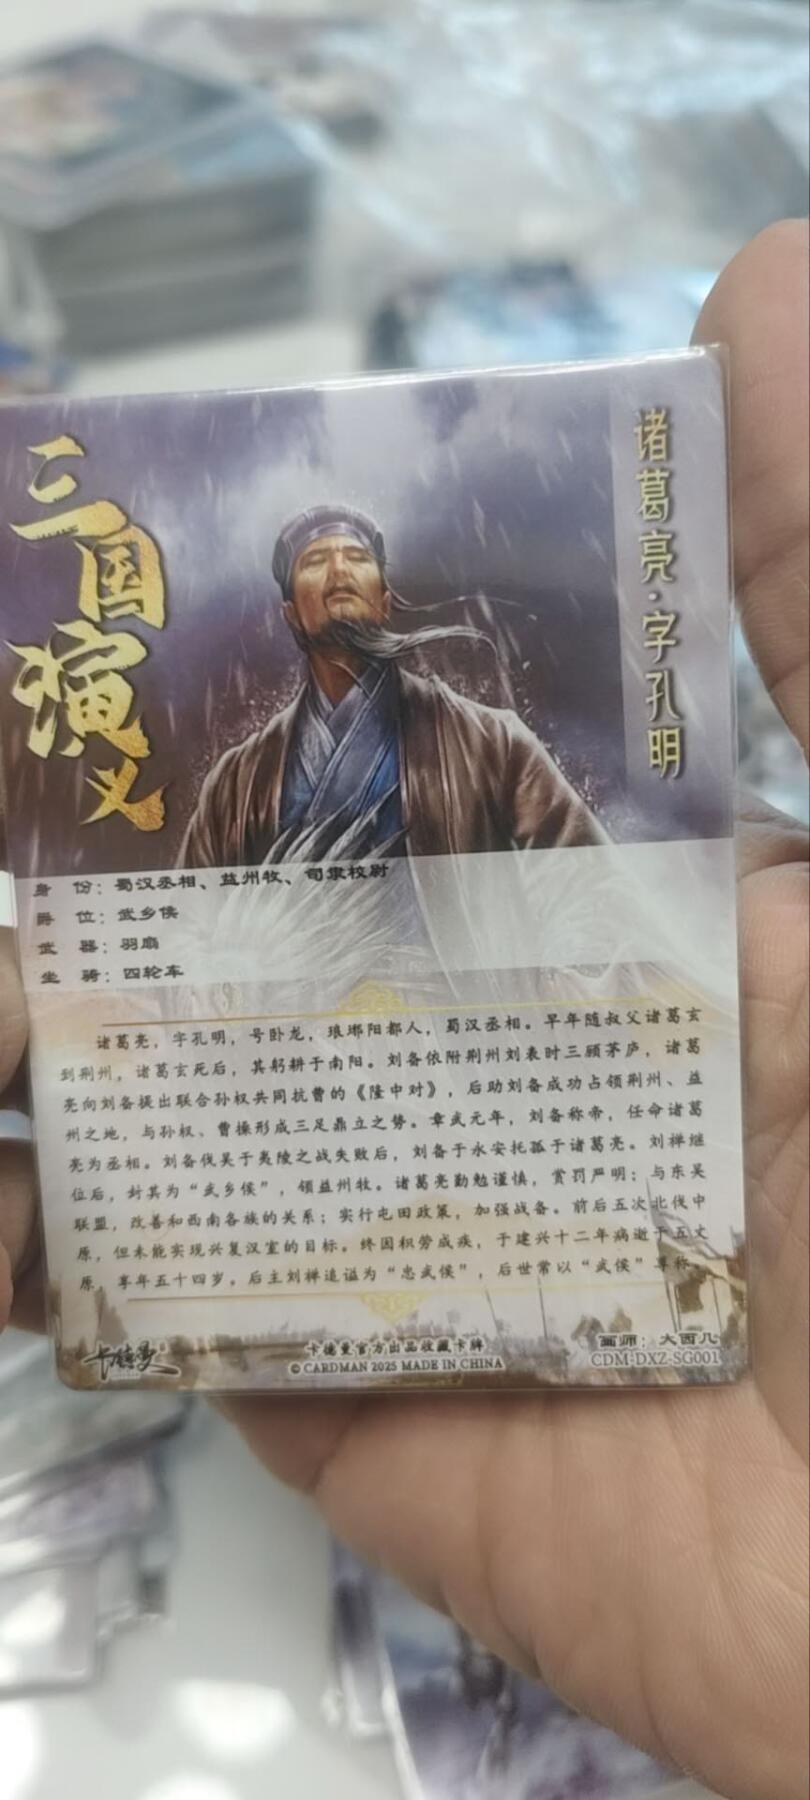 三国演义
诸葛亮·字孔明
身 份：蜀汉丞相、益州牧、司隶校尉
爵 位：武乡侯
武 器：羽扇
坐 骑：四轮车
诸葛亮，字孔明，号卧龙，琅琊阳都人，蜀汉丞相。早年随叔父诸葛玄
到荆州，诸葛玄死后，其躬耕于南阳。刘备依附荆州刘表时三顾茅庐，诸葛
亮向刘备提出联合孙权共同抗曹的《隆中对》，后助刘备成功占领荆州、益
州之地，与孙权、曹操形成三足鼎立之势。章武元年，刘备称帝，任命诸葛
亮为丞相。刘备伐吴于夷陵之战失败后，刘备于永安托孤于诸葛亮。刘禅继
位后，封其为“武乡侯”，领益州牧。诸葛亮勤勉谨慎，赏罚严明；与东吴
联盟，改善和西南各族的关系；实行屯田政策，加强战备。前后五次北伐中
原，但未能实现兴复汉室的目标。终因积劳成疾，于建兴十二年病逝于五丈
原，享年五十四岁。后主刘禅追谥为“忠武侯”，后世常以“武侯”尊称。
卡德曼
卡德曼官方出品收藏卡牌
© CARDMAN 2025 MADE IN CHINA
画师：大西几
CDM-DXZ-SG001